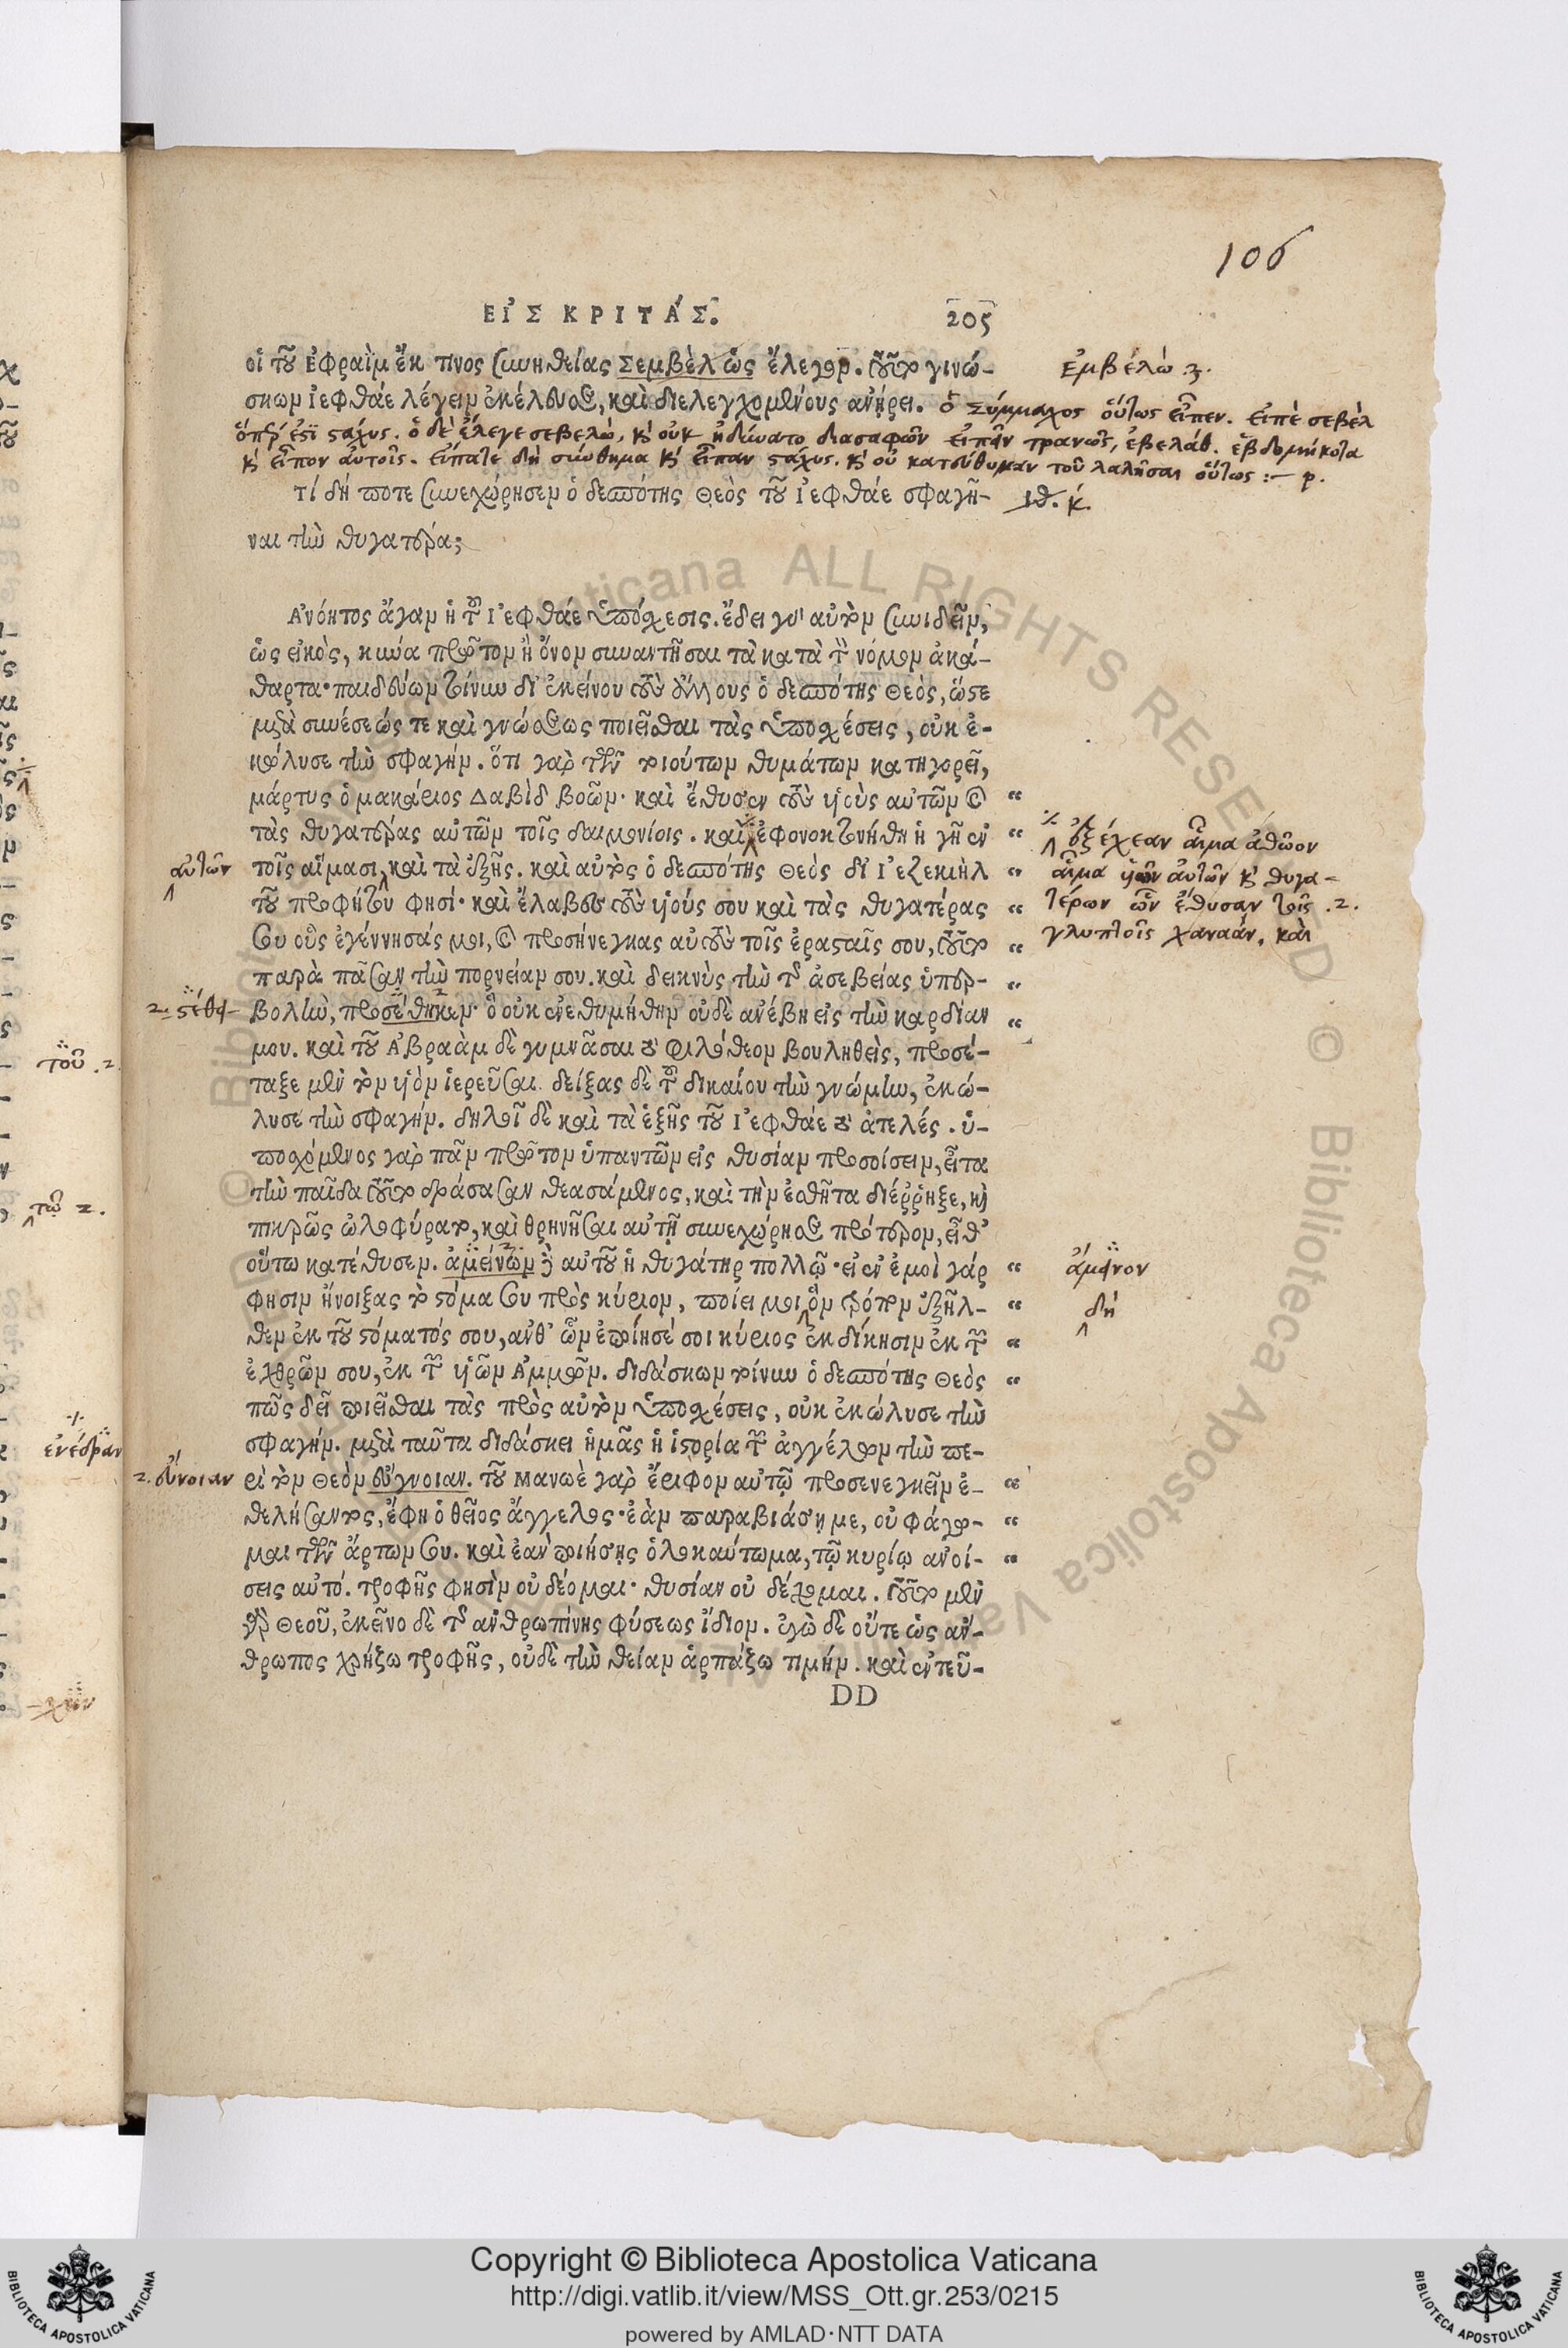 106
ΕἸΣ ΚΡΙΤΆΣ.
205
οἱ τοῦ Ἐφραῒμ ἔκ τινος συνηθείας Σεμβὲλ ὡς ἔλεγον. τοῦτο γινώ-
Ἐμβέλω 3.
σκων Ἰεφθάε λέγειν ἐκέλευσε, καὶ διελεγχομένους ἀνῄρει. ὁ Σύμμαχος οὕτως εἶπεν. εἰπὲ σεβὲλ
ὅπερ ἐστὶ στάχυς. ὁ δὲ ἔλεγε σεβελὼ, κ οὐκ ἠδύνατο διασαφῶν εἰπεῖν τρανῶς, ἑβδομήκοντα
κ εἶπον αὐτοῖς. εἴπατε δὴ σύνθημα κ εἶπαν στάχυς. κ οὐ κατεύθυναν τοῦ λαλῆσαι οὕτως :– ρ.
τί δή ποτε συνεχώρησεν ὁ δεσπότης Θεὸς τοῦ Ἰεφθάε σφαγῆ-
ιθ. κ.
ναι τὴν θυγατέρα;
Ἀνόητος ἄγαν ἡ τοῦ Ἰεφθάε ὑπόσχεσις. ἔδει γὰρ αὐτὸν συνιδεῖν,
ὡς εἰκὸς, κύνα πρῶτον ἢ ὄνον συναντῆσαι τὰ κατὰ τὸν νόμον ἀκά-
θαρτα· παιδεύων τοίνυν δι' ἐκείνου τοὺς ἄλλους ὁ δεσπότης Θεὸς, ὥστε
μετὰ συνέσεώς τε καὶ γνώσεως ποιεῖσθαι τὰς ὑποσχέσεις, οὐκ ἐ-
κώλυσε τὴν σφαγήν. ὅτι γὰρ τῶν τοιούτων θυμάτων κατηγορεῖ,
μάρτυς ὁ μακάριος Δαβὶδ βοῶν· καὶ ἔθυσαν τοὺς υἱοὺς αὐτῶν καὶ “
τὰς θυγατέρας αὐτῶν τοῖς δαιμονίοις. καὶ ἐφονοκτονήθη ἡ γῆ ἐν “
ἐξέχεαν αἷμα ἀθῶον
αὐτῶν
τοῖς αἵμασι, καὶ τὰ ἑξῆς. καὶ αὐτὸς ὁ δεσπότης Θεὸς δι' Ἰεζεκιὴλ “
αἷμα υἱῶν αὐτῶν κ θυγα-
τοῦ προφήτου φησί· καὶ ἔλαβες τοὺς υἱούς σου καὶ τὰς θυγατέρας “
τέρων ὧν ἔθυσαν τοῖς .2.
σου οὓς ἐγέννησάς μοι, καὶ προσήνεγκας αὐτοὺς τοῖς ἐρασταῖς σου, τοῦτο “
γλυπτοῖς χαναάν. καὶ
παρὰ πᾶσαν τὴν πορνείαν σου. καὶ δεικνὺς τὴν τῆς ἀσεβείας ὑπερ- “
2. στέθη-
βολὴν, προσέθηκεν· ὃ οὐκ ἐνεθυμήθην οὐδὲ ἀνέβη εἰς τὴν καρδίαν “
μου. καὶ τοῦ Ἀβραὰμ δὲ γυμνᾶσαι τὸ φιλόθεον βουληθεὶς, προσέ-
ταξε μὲν τὸν υἱὸν ἱερεῦσαι. δείξας δὲ τοῦ δικαίου τὴν γνώμην, ἐκώ-
λυσε τὴν σφαγήν. δηλοῖ δὲ καὶ τὰ ἑξῆς τοῦ Ἰεφθάε τὸ ἀτελές. ὑ-
ποσχόμενος γὰρ πᾶν πρῶτον ὑπαντῶν εἰς θυσίαν προσοίσειν, εἶτα
τὴν παῖδα τοῦτο δράσασαν θεασάμενος, καὶ τὴν ἐσθῆτα διέῤῥηξε, κὶ
πικρῶς ὠλοφύρατο, καὶ θρηνῆσαι αὐτῇ συνεχώρησε πρότερον, εἶθ'
οὕτω κατέθυσεν. ἀμείνων δὲ αὐτοῦ ἡ θυγάτηρ πολλῷ· εἰ ἐν ἐμοὶ γάρ “
ἄμεινον
φησιν ἤνοιξας τὸ στόμα σου πρὸς κύριον, ποίει μοι ὃν τρόπον ἐξῆλ- “
δή
θεν ἐκ τοῦ στόματός σου, ἀνθ' ὧν ἐποίησέ σοι κύριος ἐκδίκησιν ἐκ τῶν “
ἐχθρῶν σου, ἐκ τῶν υἱῶν Ἀμμών. διδάσκων τοίνυν ὁ δεσπότης Θεὸς “
πῶς δεῖ ποιεῖσθαι τὰς πρὸς αὐτὸν ὑποσχέσεις, οὐκ ἐκώλυσε τὴν
σφαγήν. μετὰ ταῦτα διδάσκει ἡμᾶς ἡ ἱστορία τῶν ἀγγέλων τὴν πε-
2. εὔνοιαν
ρὶ τὸν Θεὸν εὔγνοιαν. τοῦ Μανωὲ γὰρ ἔριφον αὐτῷ προσενεγκεῖν ἐ- “
θελήσαντος, ἔφη ὁ θεῖος ἄγγελος· ἐὰν παραβιάσῃ με, οὐ φάγο- “
μαι τῶν ἄρτων σου. καὶ ἐὰν ποιήσῃς ὁλοκαύτωμα, τῷ κυρίῳ ἀνοί- “
σεις αὐτό. τροφῆς φησὶν οὐ δέομαι· θυσίαν οὐ δέχομαι. τοῦτο μὲν
γὰρ Θεοῦ, ἐκεῖνο δὲ τῆς ἀνθρωπίνης φύσεως ἴδιον. ἐγὼ δὲ οὔτε ὡς ἄν-
θρωπος χρῄζω τροφῆς, οὐδὲ τὴν θείαν ἁρπάξω τιμήν. καὶ ἐντεῦ-
DD
τοῦ .2.
τῷ 2.
ἐνέδραν
Copyright © Biblioteca Apostolica Vaticana
http://digi.vatlib.it/view/MSS_Ott.gr.253/0215
powered by AMLAD·NTT DATA
BIBLIOTECA APOSTOLICA VATICANA
BIBLIOTECA APOSTOLICA VATICANA